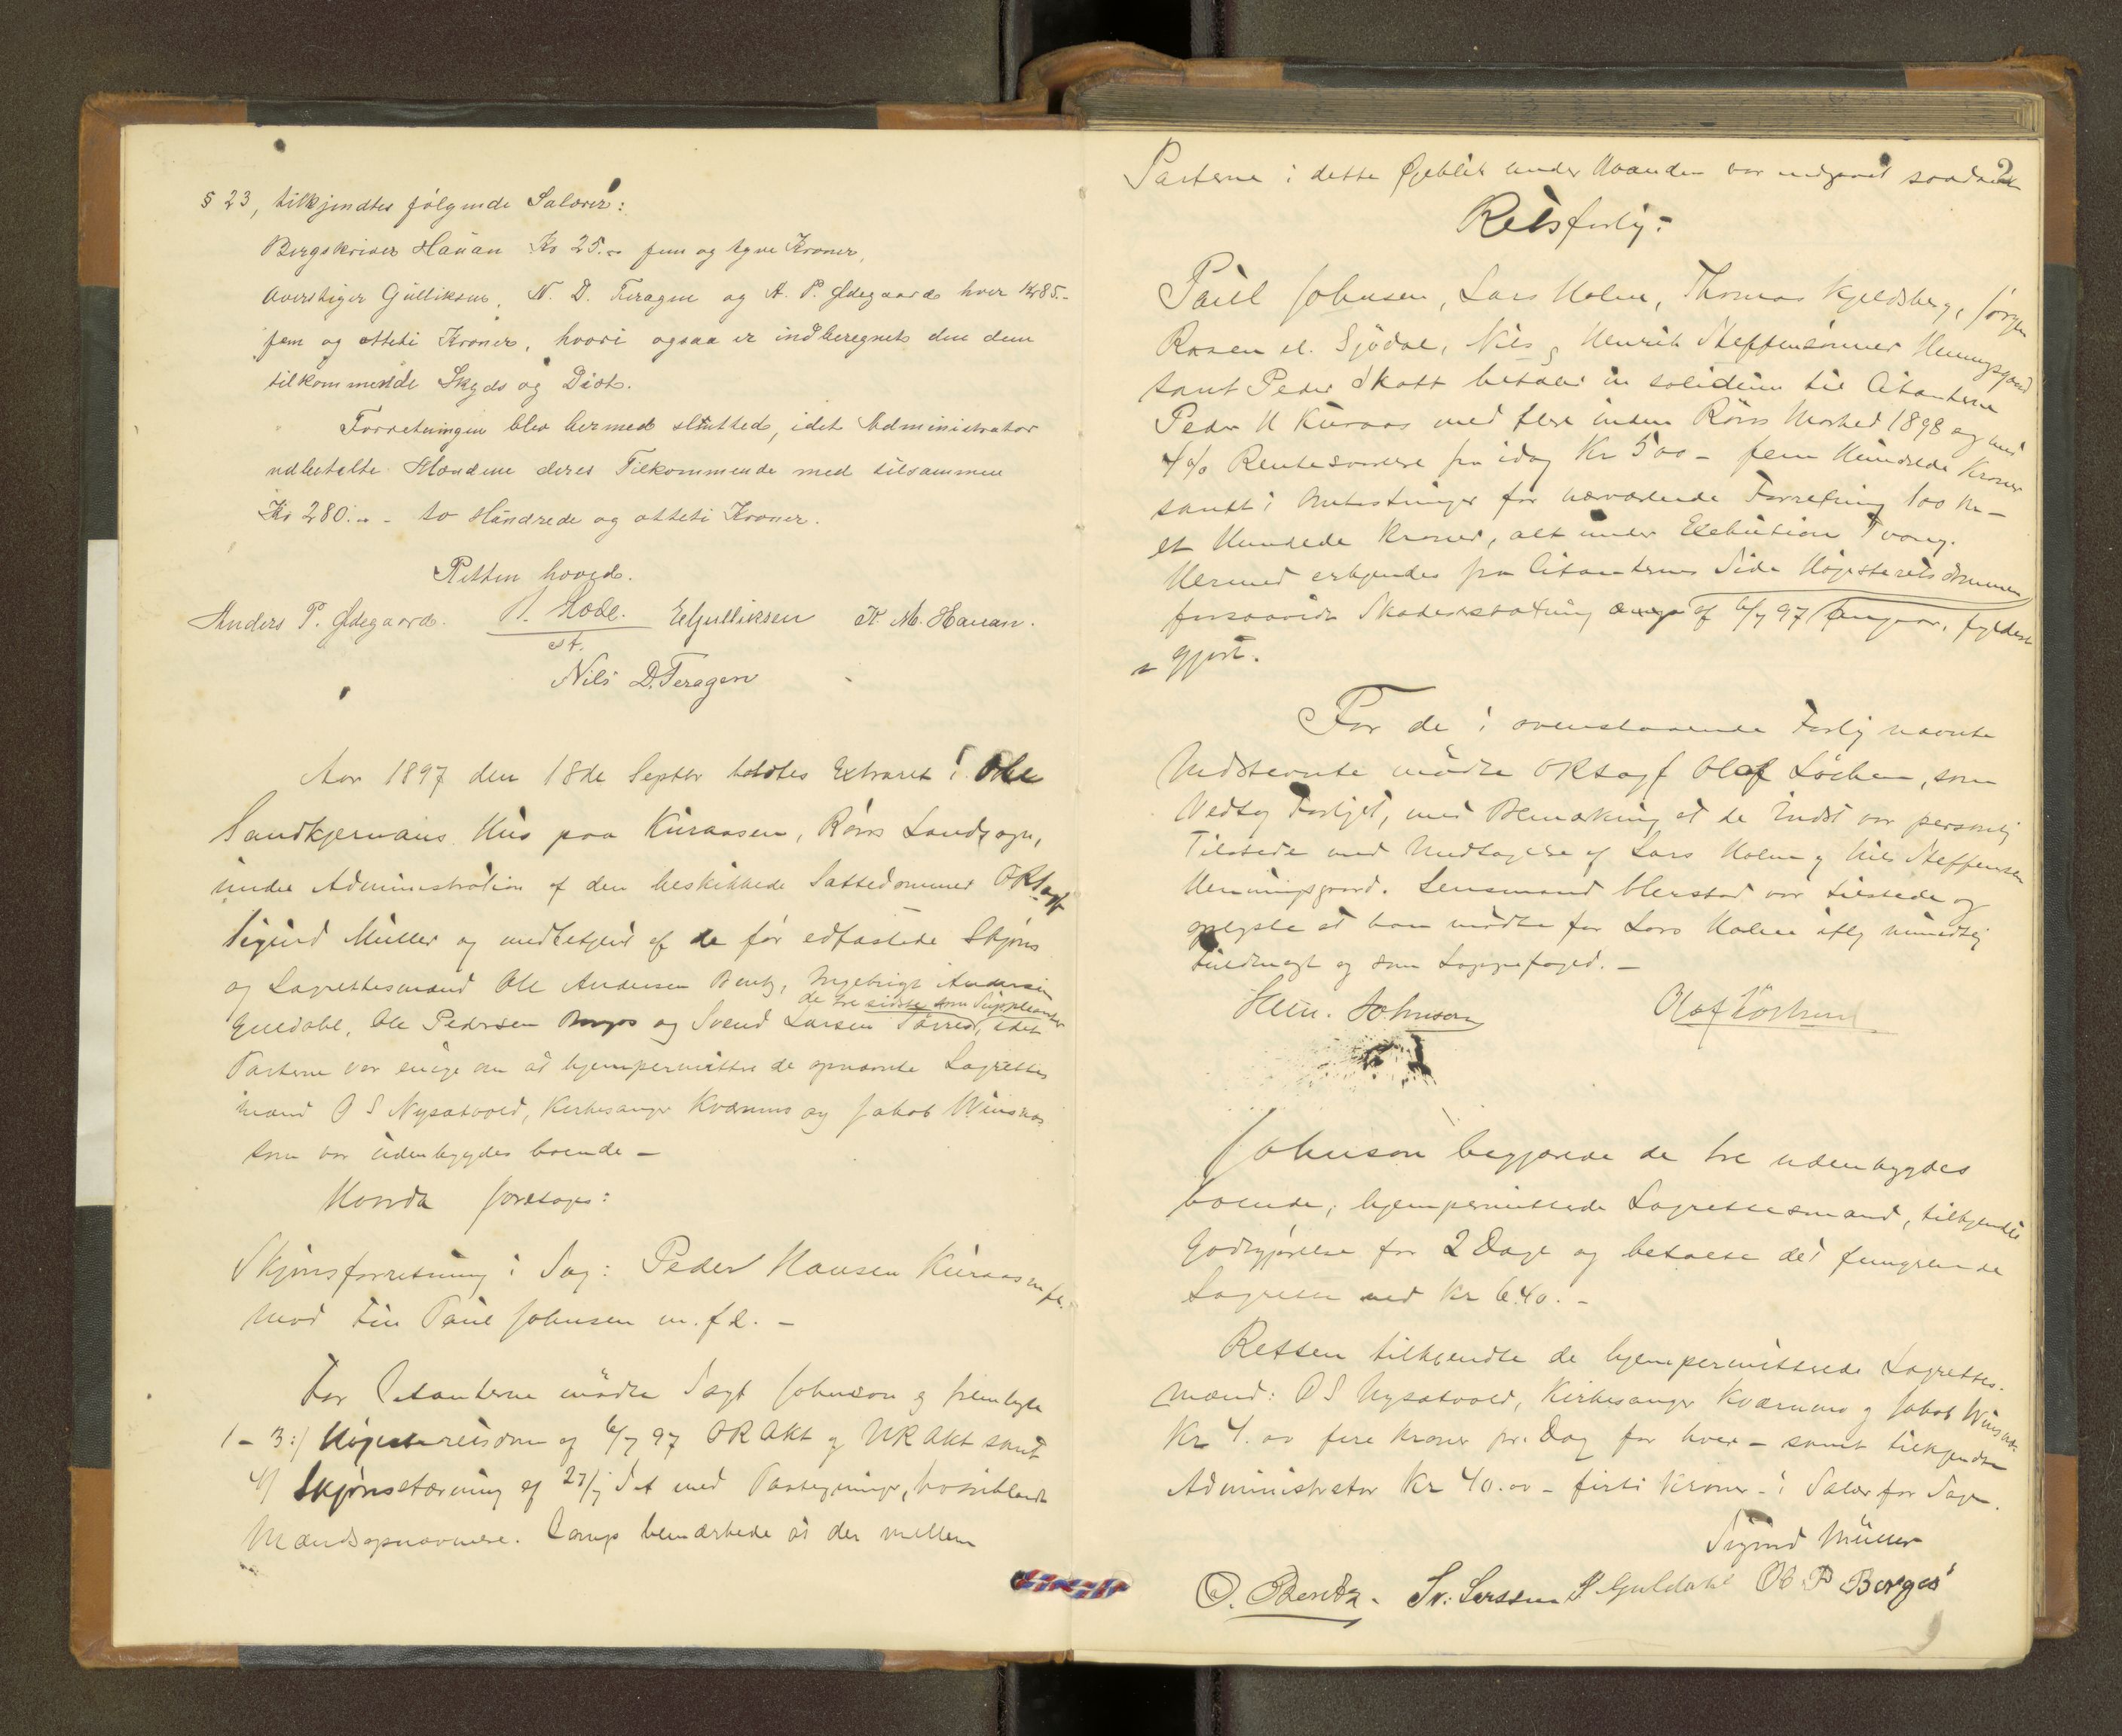 § 23, tilkjendtes følgende Salærer:
Bergskriver Hauan Kr 25.- fem og tyve Kroner,
Overstiger Gulliksen, N. D. Feragen og A. P. Ødegaards hver Kr 85.-
fem og otteti Kroner, hvori ogsaa er indberegnet den dem
tilkommende Skyds og Diæt.
Forretningen blev hermed slutted, idet Administrator
udbetalte Mændene deres Tilkommende med tilsammen
Kr 280.- - to Hundrede og otteti Kroner.
Retten hæved.
Anders P. Ødegaard. EGulliksen K. M. Hauan.
st.
Nils D. Feragen
Aar 1897 den 18de Septbr holdtes Extraret i Ole
Sandkjernans Hus paa Kuraasen, Røros Landsogn,
under Administration af den beskikkede Sættedommer ORsagf
Sigurd Müller og medbetjent af de før edfæstede Skjøns
og Lagrettesmænd Ole Andersen Bentz, Ingebrigt Andersen
de tre sidste som Suppleanter
Guldahl, Ole Pedersen Borgos og Svend Larsen idet
Parterne var enige om at hjempermittere de opnævnte Lagrettes
mænd O S Nysatvold, Kirkesanger Kværnmo og Jakob Winsnes
som var udenbygdes boende -
Hvorda foretages:
Skjønsforretning i Sag: Peder Hansen Kuraas m fl.
mod Paul Johnsen m. fl. -
For Citanterne mødte Sagf Johnson og fremlagte
1 - 3:/ Højesteretsdom af 6/7 97 OR Akt og UR Akt samt
4/ Skjønsstævning af 27/7 d A med Paategninger, hvoriblandt
Mændsopnævnelse. Comp bemærkede at der mellem
2
Parterne i dette Øjeblik under Haanden var indgaaet saadant
Retsforlig:
Paul Johnsen, Lars Holm, Thomas Kjeldsberg, Jørgen
Rasen el. Sjødal, Nils og Henrik Steffensønner Henningsgaard
samt Peder Skott betaler in solidum til Citanterne
Peder H Kuraas med flere inden Røros Marked 1898 og med
4% Rentesvarelse fra idag Kr 500 - fem Hundrede Kroner
samt i Omkostninger for nærværende Forretning 100 Kr -
et Hundrede Kroner, alt under Exekutions Tvang.
Hermed erkjendes fra Citanternes Side Højesteretsdommen
forsaavidt Skadeserstatning af 6/7 97 angaar, fyldest
gjort.
For de i ovenstaaende Forlig nævnte
Indstevnte mødte ORsagf Olaf Löchen, som
Vedtog Forliget, med Bemærkning at de Indst var personlig
Tilstede med Undtagelse af Lars Holm og Nils Steffensen
Henningsgaard. Lensmand var tilstede og
oplyste at han mødte for Lars Holm iflg mundtlig
Fuldmagt og som Lappefoged. -
Johnson Olaf Löchen
Johnson begjærede de tre udenbygdes
boende, hjempermitterede Lagrettesmænd, tilkjendte
Godtgjørelse for 2 Dage og betalte det fungerende
Lagrette med Kr 6.40. -
Retten tilkjendte de hjempermitterede Lagrettes-
mænd: O S Nysatvold, Kirkesanger Kværnmo og Jakob Winsnes
Kr 4.00 fire Kroner pr. Dag for hver - samt tilkjendte
Administrator Kr 40.00 - firti Kroner - i Salær for Sagen.
Sigurd Müller
O. Bentz. Sv: Larssen I Guldahl Ole P Borgos